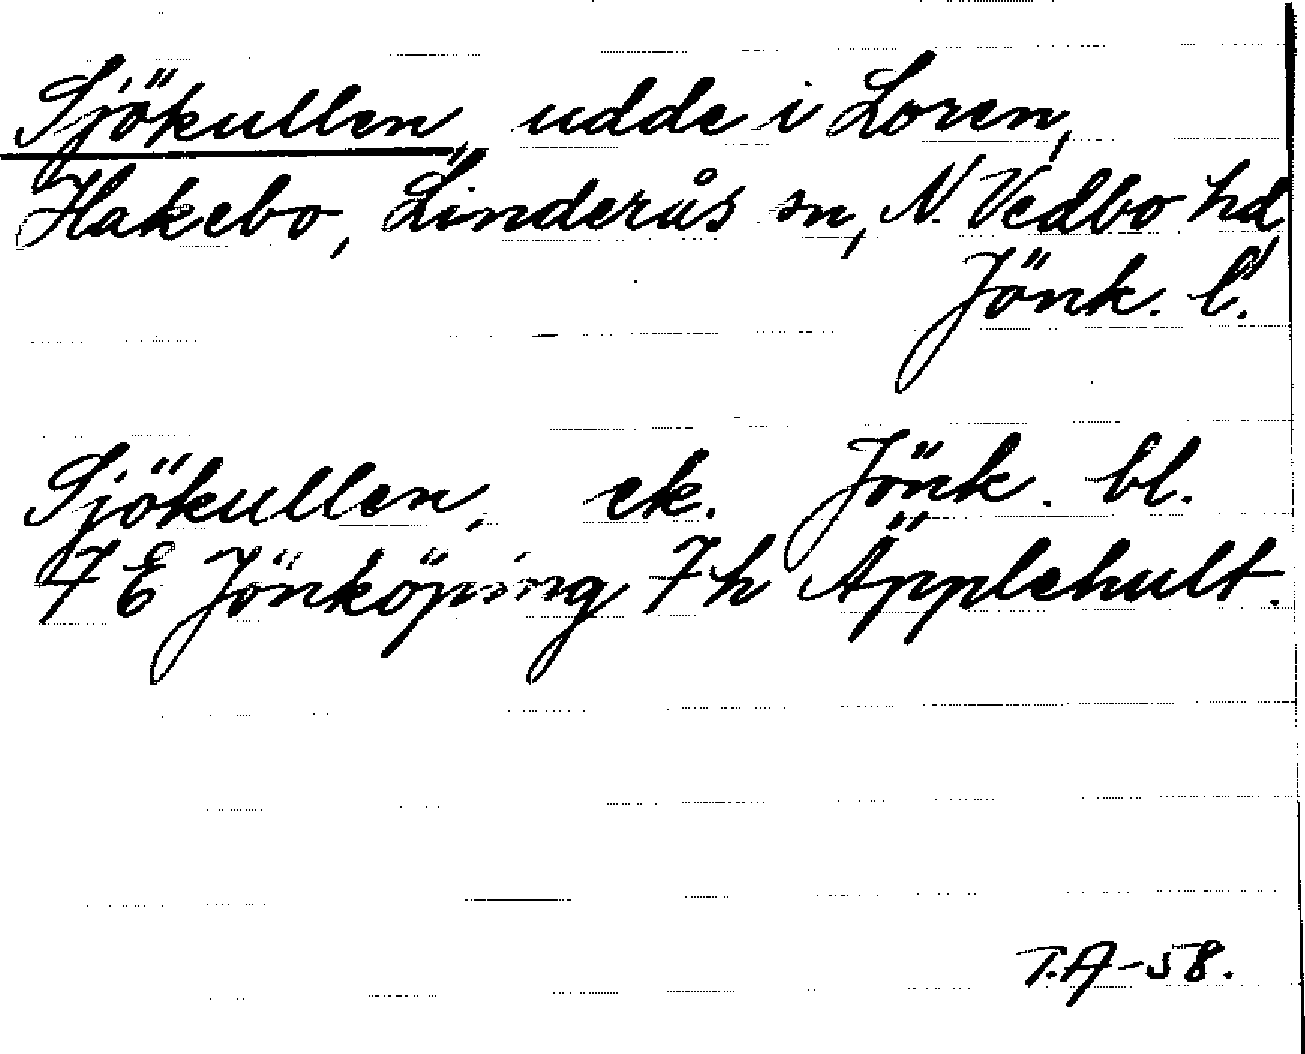 Sjökullen, udde i Loren,
Hakebo, Linderås sn, N. Vedbo hd,
Jönk. l.
Sjökullen, ek. Jönk. bl.
7E Jönköping 7h Äpplehult.
T.A-58.